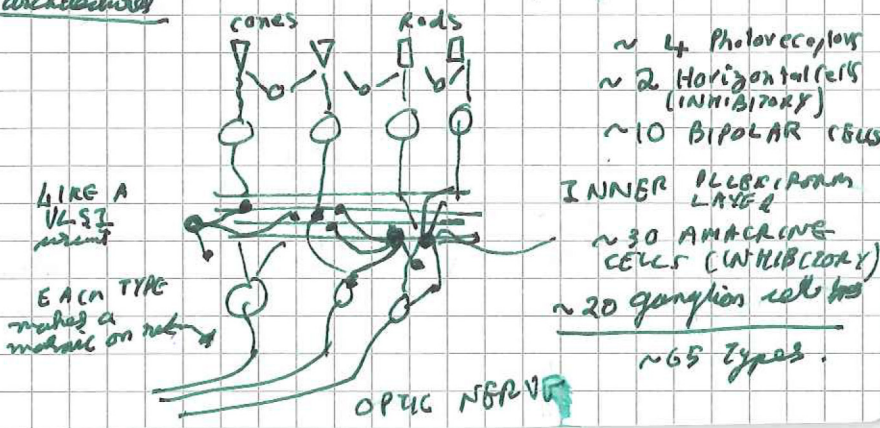 cones Rods
~ 4 Photoreceptors
~ 2 Horizontal cells
(INHIBITORY)
~10 BIPOLAR CELLS
LIKE A
VLSI
circuit
INNER PLEXIFORM
LAYER
~30 AMACRINE
CELLS (INHIBITORY)
EACH TYPE
makes a
mosaic on
~20 ganglion cell
~65 Types.
OPTIC NERVE